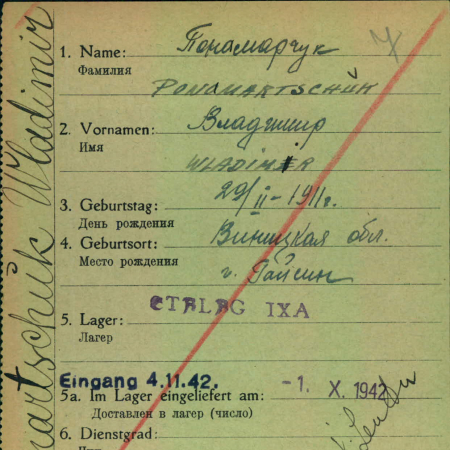 1. Name: Понамарчук
Фамилия
PONAMARTSCHUK
2. Vornamen: Владимир
Имя
WLADIMIR
29/II-1911г.
3. Geburtstag:
День рождения
4. Geburtsort: Виницкая обл.
Место рождения
г. Гайсин
STALAG IXA
5. Lager:
Лагерь
Eingang 4.11.42. -1. X. 1942
5a. Im Lager eingeliefert am:
Доставлен в лагерь (число)
6. Dienstgrad:
martschuk Wladimir